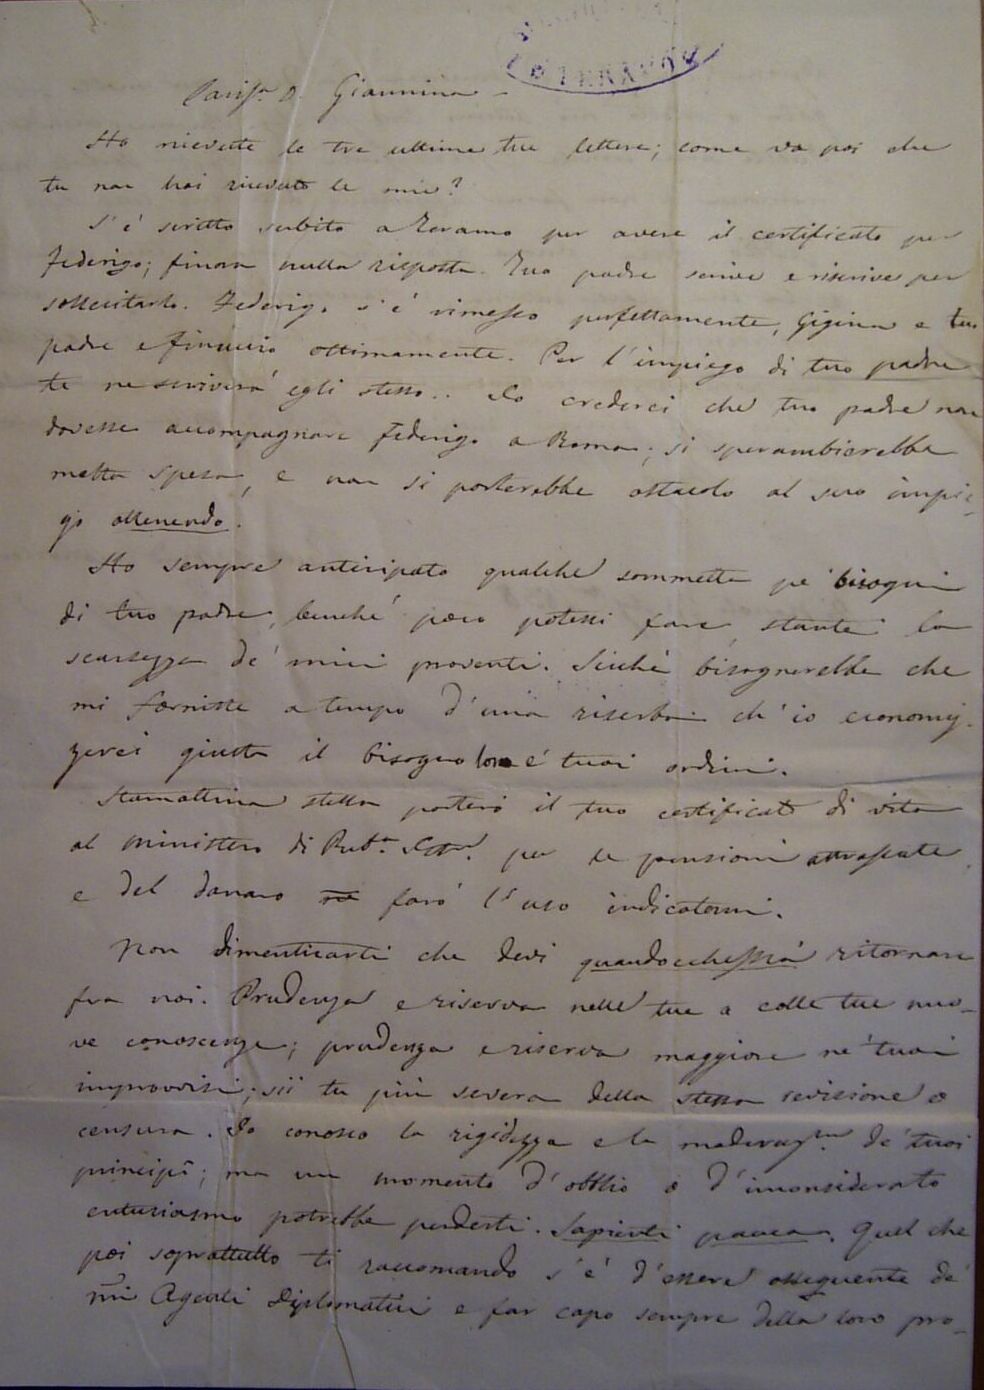 Cariss.ª D. Giannina -
Ho ricevute le tre ultime tue lettere; come va poi che
tu non hai ricevuto le mie?
S'è scritto subito a Teramo per avere il certificato per
Federigo; finora nulla risposta. Tuo padre scrive e riscrive per
sollecitarlo. Federigo s'è rimesso perfettamente, Gigina e tuo
padre e finuccio ottimamente. Per l'impiego di tuo padre
te ne scriverà egli stesso.. Io crederei che tuo padre non
dovesse accompagnare Federigo a Roma; si
molta spesa, e non si porterebbe ostacolo al suo impie-
go ottenendo.
Ho sempre anticipato qualche sommetta pe' bisogni
di tuo padre, benché poco potessi fare, stante la
scarsezza de' miei proventi. Sicché bisognerebbe che
mi fornisse a tempo d'una riserba ch'io economiz-
zerei giusta il bisogno loro e' tuoi ordini.
Stamattina stessa porterò il tuo certificato di vita
al Ministero di Pub.ª Istr. per le pensioni attrassate
e del danaro farò l'uso indicatomi.
Non dimenticarti che devi quandocchessia ritornare
fra noi. Prudenza e riserva nelle tue o colle tue nuo-
ve conoscenze; prudenza e riserva maggiore ne' tuoi
improvvisi; sii tu più severa della stessa revisione o
censura. Io conosco la rigidezza e la de' tuoi
principî; ma un momento d'obblio o d'inconsiderato
entusiasmo potrebbe perderti. Sapienti pauca. Quel che
poi soprattutto ti raccomando s'è d'essere ossequente de'
nri Agenti Diplomatici e far capo sempre della loro pro-